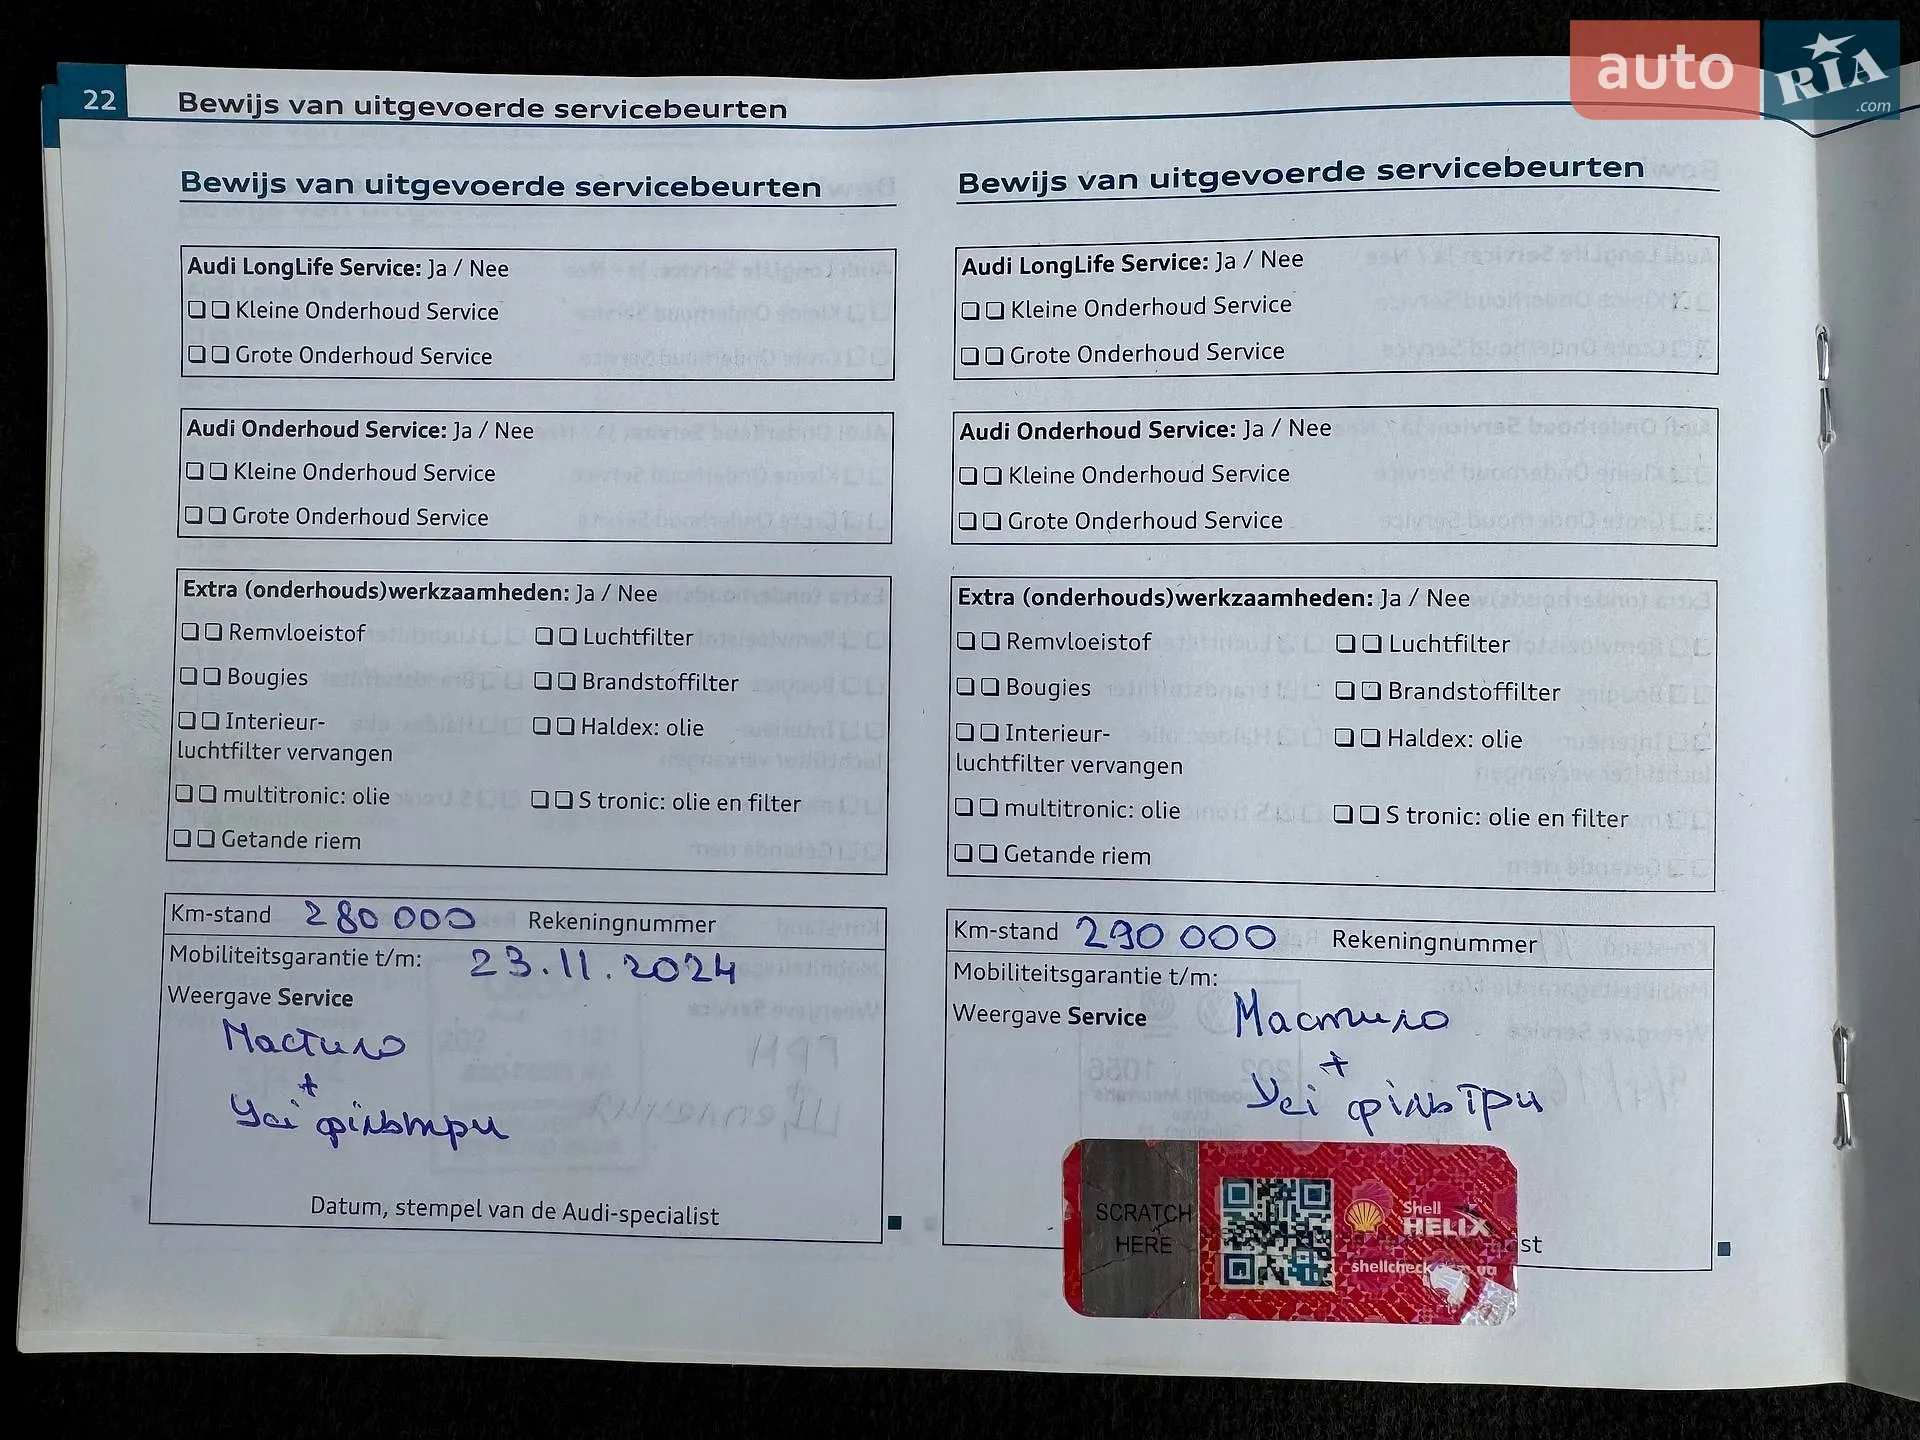 auto RIA .com
22 Bewijs van uitgevoerde servicebeurten
Bewijs van uitgevoerde servicebeurten
Audi LongLife Service: Ja / Nee
Kleine Onderhoud Service
Grote Onderhoud Service
Audi Onderhoud Service: Ja / Nee
Kleine Onderhoud Service
Grote Onderhoud Service
Extra (onderhouds)werkzaamheden: Ja / Nee
Remvloeistof Luchtfilter
Bougies Brandstoffilter
Interieur- Haldex: olie
luchtfilter vervangen
multitronic: olie S tronic: olie en filter
Getande riem
Km-stand 280 000 Rekeningnummer
Mobiliteitsgarantie t/m: 23.11.2024
Weergave Service
Мастило
+
Усі фільтри
Datum, stempel van de Audi-specialist
Bewijs van uitgevoerde servicebeurten
Audi LongLife Service: Ja / Nee
Kleine Onderhoud Service
Grote Onderhoud Service
Audi Onderhoud Service: Ja / Nee
Kleine Onderhoud Service
Grote Onderhoud Service
Extra (onderhouds)werkzaamheden: Ja / Nee
Remvloeistof Luchtfilter
Bougies Brandstoffilter
Interieur- Haldex: olie
luchtfilter vervangen
multitronic: olie S tronic: olie en filter
Getande riem
Km-stand 290 000 Rekeningnummer
Mobiliteitsgarantie t/m:
Weergave Service Мастило
+
Усі фільтри
SCRATCH
HERE
Shell
HELIX
shellcheck